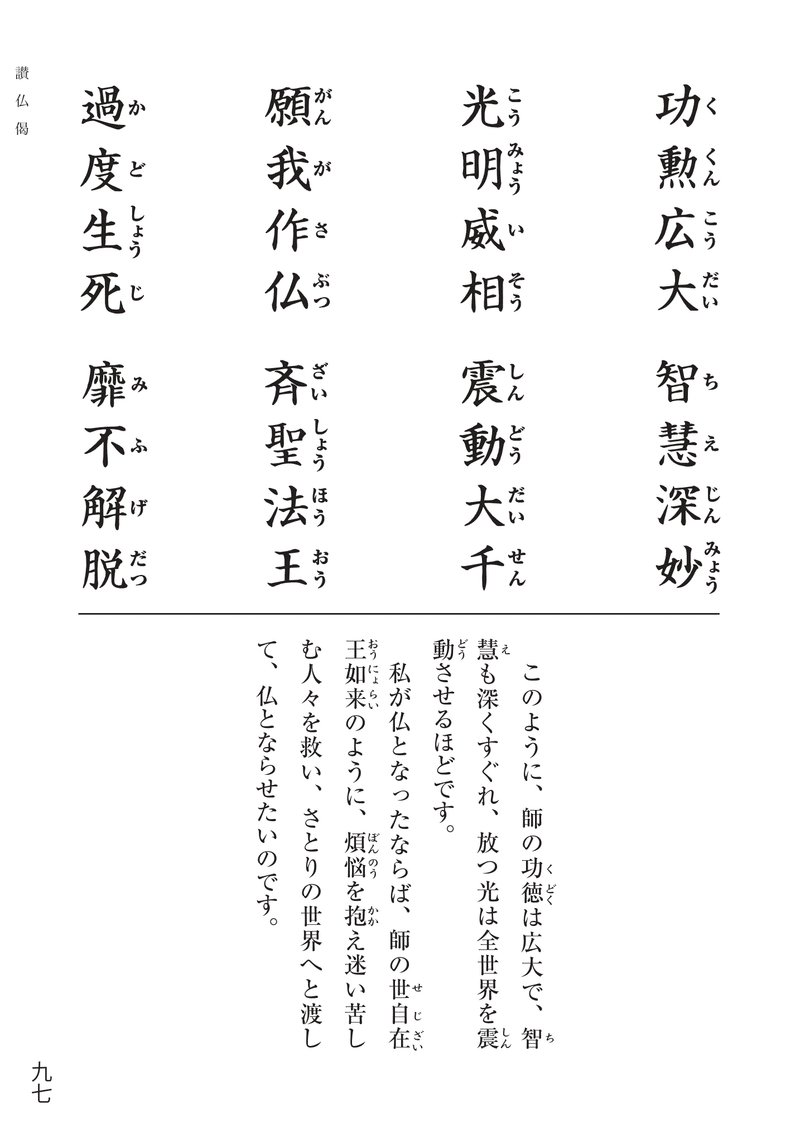 功勲広大 智慧深妙
くくんこうだい ちえじんみょう
光明威相 震動大千
こうみょういそう しんどうだいせん
願我作仏 斉聖法王
がんがさぶつ ざいしょうほうおう
過度生死 靡不解脱
かどしょうじ みふげだつ
このように、師の功徳は広大で、智
くどく ち
慧も深くすぐれ、放つ光は全世界を震
え しん
動させるほどです。
どう
私が仏となったならば、師の世自在
せじざい
王如来のように、煩悩を抱え迷い苦し
おうにょらい ぼんのう かか
む人々を救い、さとりの世界へと渡し
て、仏とならせたいのです。
讃仏偈
九七